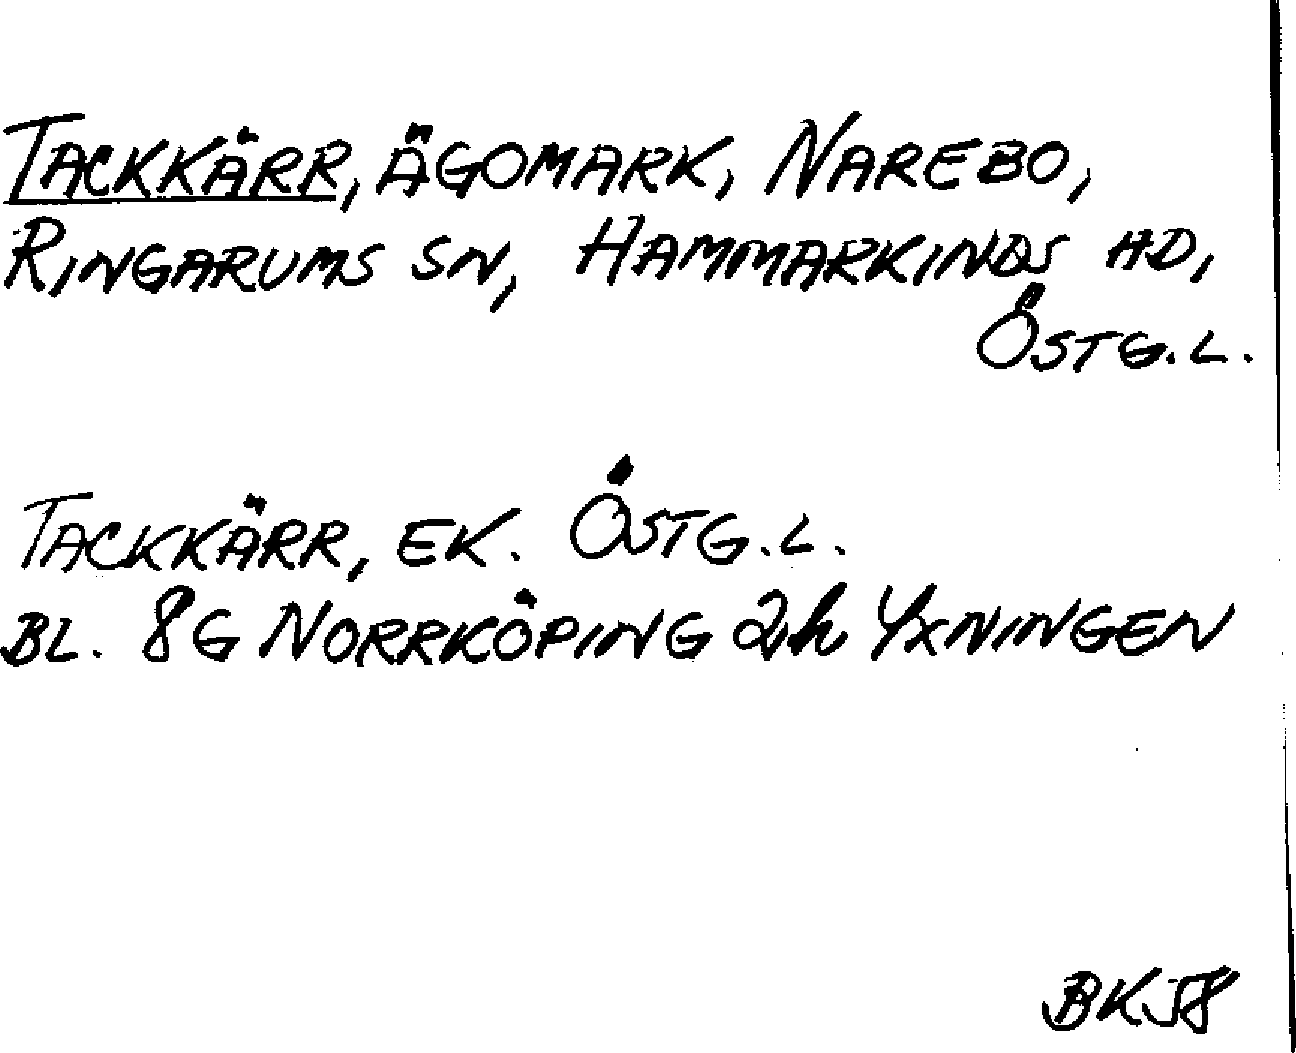 TACKKÄRR, ÄGOMARK, NAREBO,
RINGARUMS SN, HAMMARKINDS HD,
ÖSTG.L.
TACKKÄRR, EK. ÖSTG.L.
BL. 8G NORRKÖPING 2h YXNINGEN
BK58